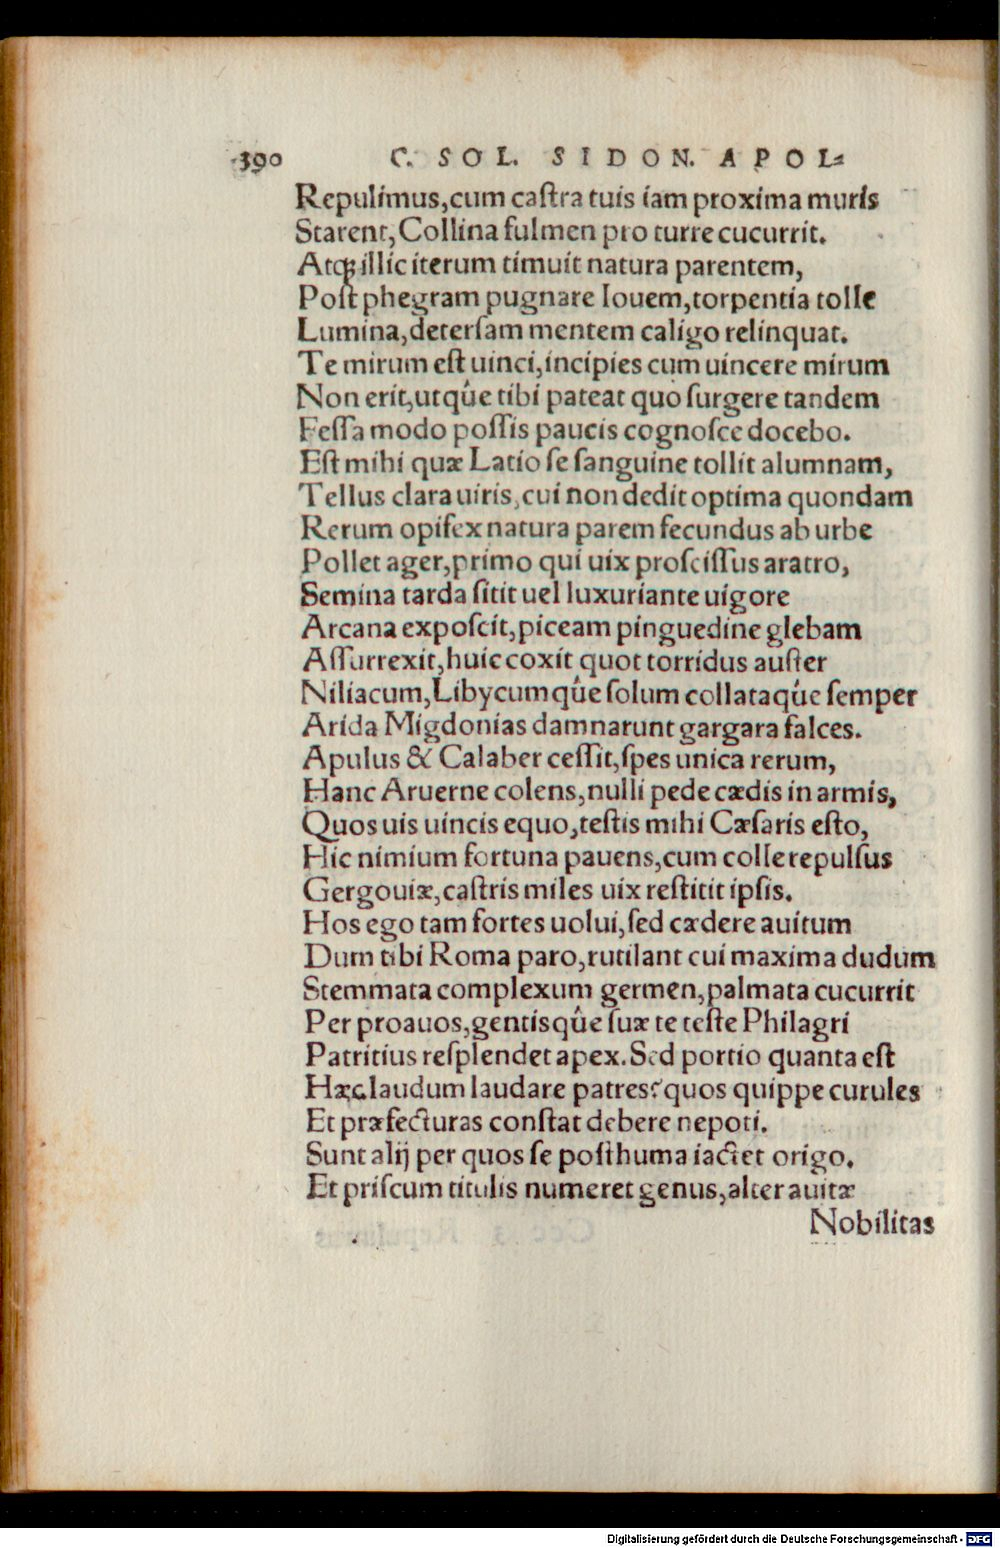 390 C. SOL. SIDON. APOL-
Repulimus,cum caſtra tuis iam proxima muris
Starent,Collina fulmen pro turre cucurrit.
Atqꝫ illic iterum timuit natura parentem,
Poſt phegram pugnare Iouem,torpentia tolle
Lumina,deterſam mentem caligo relinquat.
Te mirum eſt uinci,incipies cum uincere mirum
Non erit,utqûe tibi pateat quo ſurgere tandem
Feſſa modo poſſis paucis cognoſce docebo.
Eſt mihi quæ Latio ſe ſanguine tollit alumnam,
Tellus clara uiris,cui non dedit optima quondam
Rerum opifex natura parem fecundus ab urbe
Pollet ager,primo qui uix proſciſſus aratro,
Semina tarda ſitit uel luxuriante uigore
Arcana expoſcit,piceam pinguedine glebam
Aſſurrexit,huic coxit quot torridus auſter
Niliacum,Libycumqûe ſolum collataqûe ſemper
Arida Migdonias damnarunt gargara falces.
Apulus & Calaber ceſſit,ſpes unica rerum,
Hanc Aruerne colens,nulli pede cædis in armis,
Quos uis uincis equo,teſtis mihi Cæſaris eſto,
Hic nimium fortuna pauens,cum colle repulſus
Gergouiæ,caſtris miles uix reſtitit ipſis.
Hos ego tam fortes uolui,ſed cædere auitum
Dum tibi Roma paro,rutilant cui maxima dudum
Stemmata complexum germen,palmata cucurrit
Per proauos,gentisqûe ſuæ te teſte Philagri
Patritius reſplendet apex.Sed portio quanta eſt
Hæc laudum laudare patres?quos quippe curules
Et præfecturas conſtat debere nepoti.
Sunt alij per quos ſe poſthuma iactet origo.
Et priſcum titulis numeret genus,alter auitæ
Nobilitas
Digitalisierung gefördert durch die Deutsche Forschungsgemeinschaft - DFG